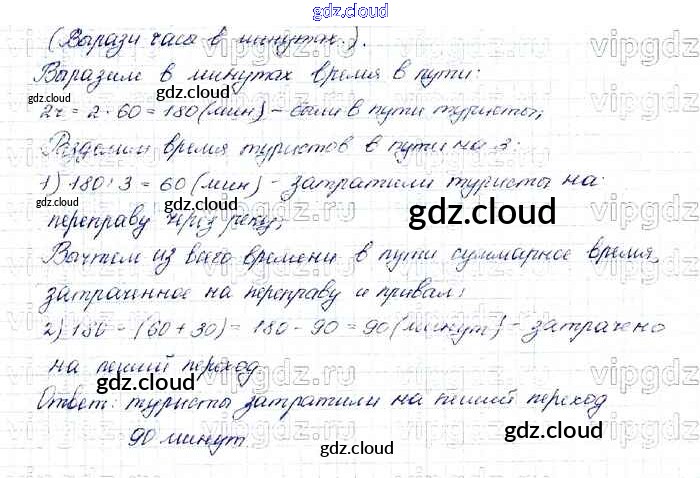 gdz.cloud
(Вырази часы в минутах.).
Выразим в минутах время в пути:
2ч = 2 · 60 = 180 (мин) - были в пути туристы;
Разделим время туристов в пути на 3:
1) 180 : 3 = 60 (мин) - затратили туристы на
переправу через реку;
Вычтем из всего времени в пути суммарное время,
затраченное на переправу и привал:
2) 180 - (60 + 30) = 180 - 90 = 90 (минут) - затрачено
на пеший переход.
Ответ: туристы затратили на пеший переход
90 минут.
gdz.cloud
gdz.cloud
gdz.cloud
gdz.cloud
gdz.cloud
gdz.cloud
gdz.cloud
gdz.cloud
vipgdz.ru